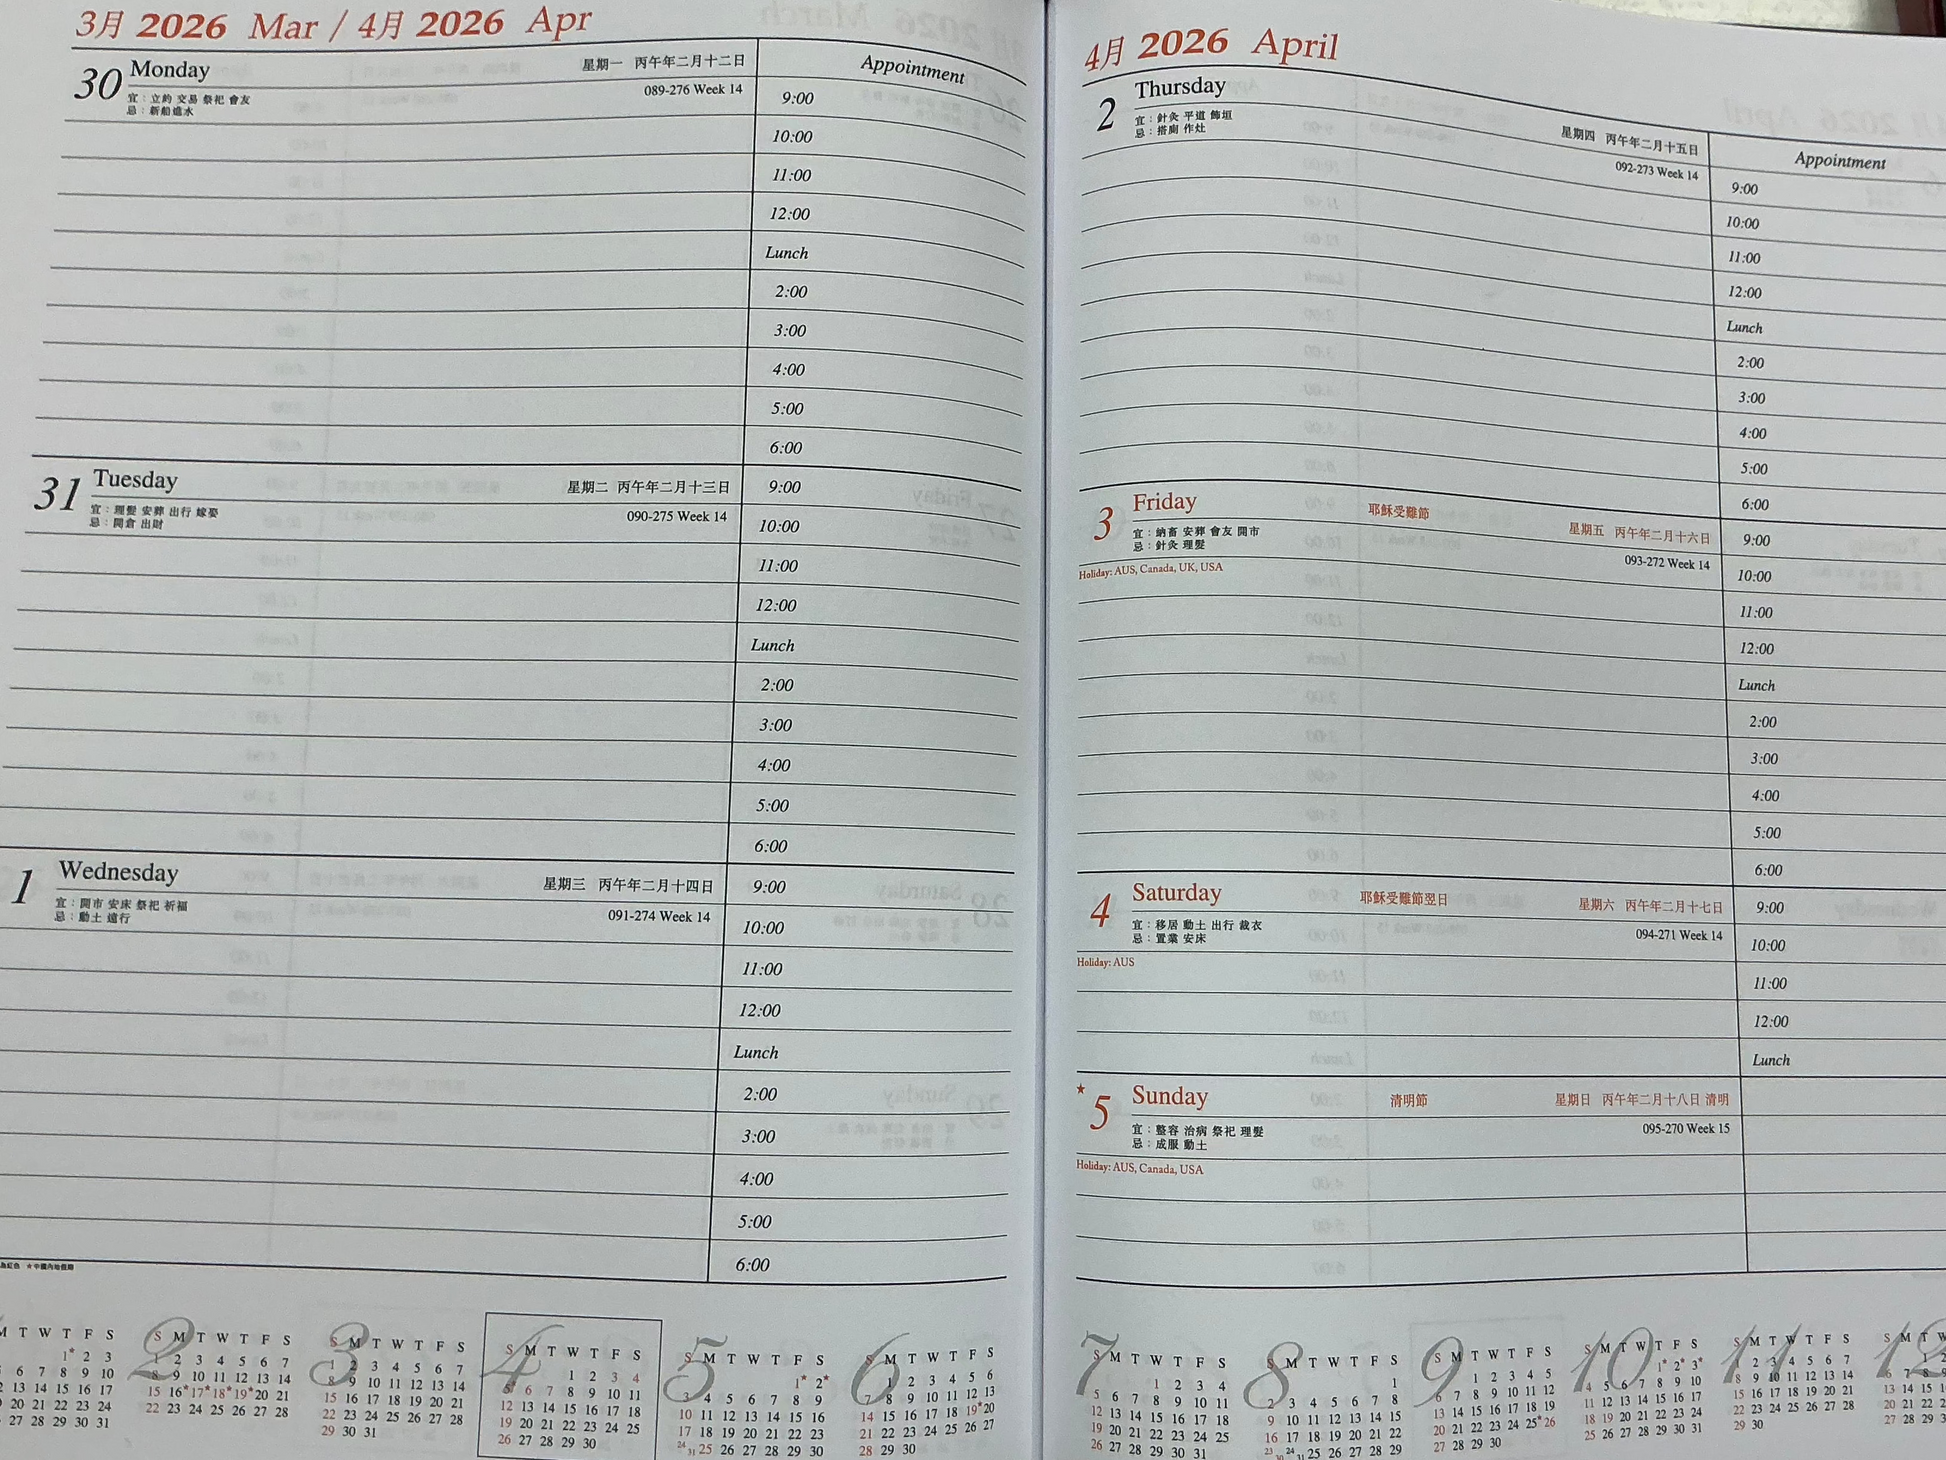 3月 2026 Mar / 4月 2026 Apr
30 Monday 星期一 丙午年二月十二日
宜：立約 交易 祭祀 會友
忌：新船進水
089-276 Week 14
Appointment
9:00
10:00
11:00
12:00
Lunch
2:00
3:00
4:00
5:00
6:00
31 Tuesday 星期二 丙午年二月十三日
宜：理髮 安葬 出行 嫁娶
忌：開倉 出財
090-275 Week 14
9:00
10:00
11:00
12:00
Lunch
2:00
3:00
4:00
5:00
6:00
1 Wednesday 星期三 丙午年二月十四日
宜：開市 安床 祭祀 祈福
忌：動土 遠行
091-274 Week 14
9:00
10:00
11:00
12:00
Lunch
2:00
3:00
4:00
5:00
6:00
為紅色 ★中國內地假期
4月 2026 April
2 Thursday 星期四 丙午年二月十五日
宜：針灸 平道 飾垣
忌：搭廁 作灶
092-273 Week 14
Appointment
9:00
10:00
11:00
12:00
Lunch
2:00
3:00
4:00
5:00
6:00
3 Friday 耶穌受難節 星期五 丙午年二月十六日
宜：納畜 安葬 會友 開市
忌：針灸 理髮
093-272 Week 14
Holiday: AUS, Canada, UK, USA
9:00
10:00
11:00
12:00
Lunch
2:00
3:00
4:00
5:00
6:00
4 Saturday 耶穌受難節翌日 星期六 丙午年二月十七日
宜：移居 動土 出行 裁衣
忌：置業 安床
094-271 Week 14
Holiday: AUS
9:00
10:00
11:00
12:00
Lunch
★5 Sunday 清明節 星期日 丙午年二月十八日 清明
宜：整容 治病 祭祀 理髮
忌：成服 動土
095-270 Week 15
Holiday: AUS, Canada, USA
M T W T F S
1* 2 3
6 7 8 9 10
13 14 15 16 17
20 21 22 23 24
27 28 29 30 31
2
S M T W T F S
1 2 3 4 5 6 7
8 9 10 11 12 13 14
15 16*17*18*19*20 21
22 23 24 25 26 27 28
3
S M T W T F S
1 2 3 4 5 6 7
8 9 10 11 12 13 14
15 16 17 18 19 20 21
22 23 24 25 26 27 28
29 30 31
4
S M T W T F S
1 2 3 4
5* 6 7 8 9 10 11
12 13 14 15 16 17 18
19 20 21 22 23 24 25
26 27 28 29 30
5
S M T W T F S
1* 2*
3 4 5 6 7 8 9
10 11 12 13 14 15 16
17 18 19 20 21 22 23
24 31 25 26 27 28 29 30
6
S M T W T F S
1 2 3 4 5 6
7 8 9 10 11 12 13
14 15 16 17 18 19*20
21 22 23 24 25 26 27
28 29 30
7
S M T W T F S
1 2 3 4
5 6 7 8 9 10 11
12 13 14 15 16 17 18
19 20 21 22 23 24 25
26 27 28 29 30 31
8
S M T W T F S
1
2 3 4 5 6 7 8
9 10 11 12 13 14 15
16 17 18 19 20 21 22
23 30 24 31 25 26 27 28 29
9
S M T W T F S
1 2 3 4 5
6 7 8 9 10 11 12
13 14 15 16 17 18 19
20 21 22 23 24 25*26
27 28 29 30
10
S M T W T F S
1* 2* 3*
4 5 6 7 8 9 10
11 12 13 14 15 16 17
18 19 20 21 22 23 24
25 26 27 28 29 30 31
11
S M T W T F S
1 2 3 4 5 6 7
8 9 10 11 12 13 14
15 16 17 18 19 20 21
22 23 24 25 26 27 28
29 30
12
S M T W
1 2
6 7 8 9
13 14 15
20 21 22
27 28 29